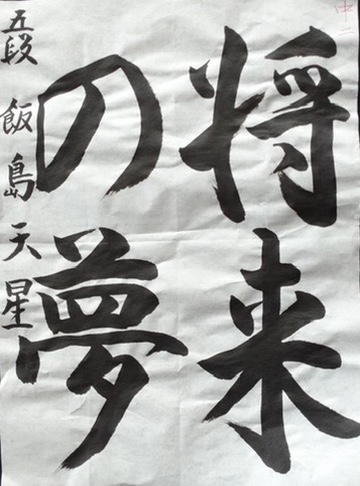 中二
将来
の夢
五段 飯島天星